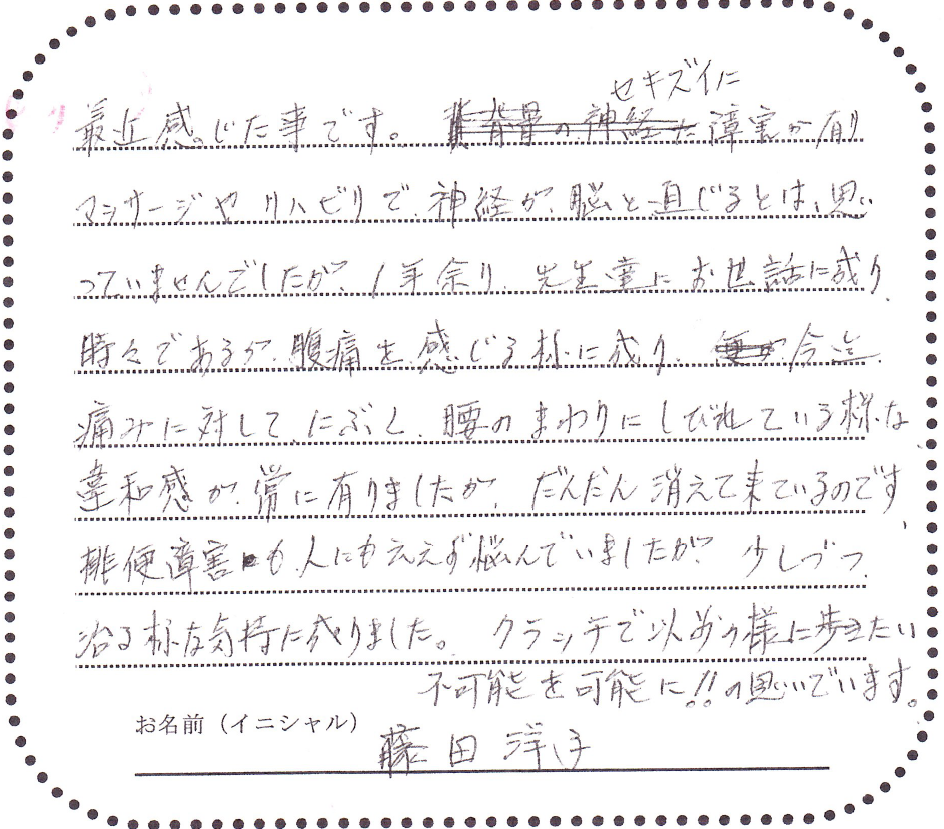 セキズイに
最近感じた事です。背骨の神経た障害が有り
マッサージや リハビリで、神経が、脳と直じるとは、思い
っていませんでしたが、1年余り、先生達にお世話に成り、
時々であるが、腹痛を感じる様に成り、今迄、
痛みに対して、にぶく、腰のまわりにしびれている様な
違和感が、常に有りましたが、だんだん消えて来ているのです、
排便障害も人にもええず悩んでいましたが、少しづつ
治る様な気持に成りました。クラッチで以前の様に歩きたい
不可能を可能に!!の思いでいます。
お名前（イニシャル）
藤田洋子